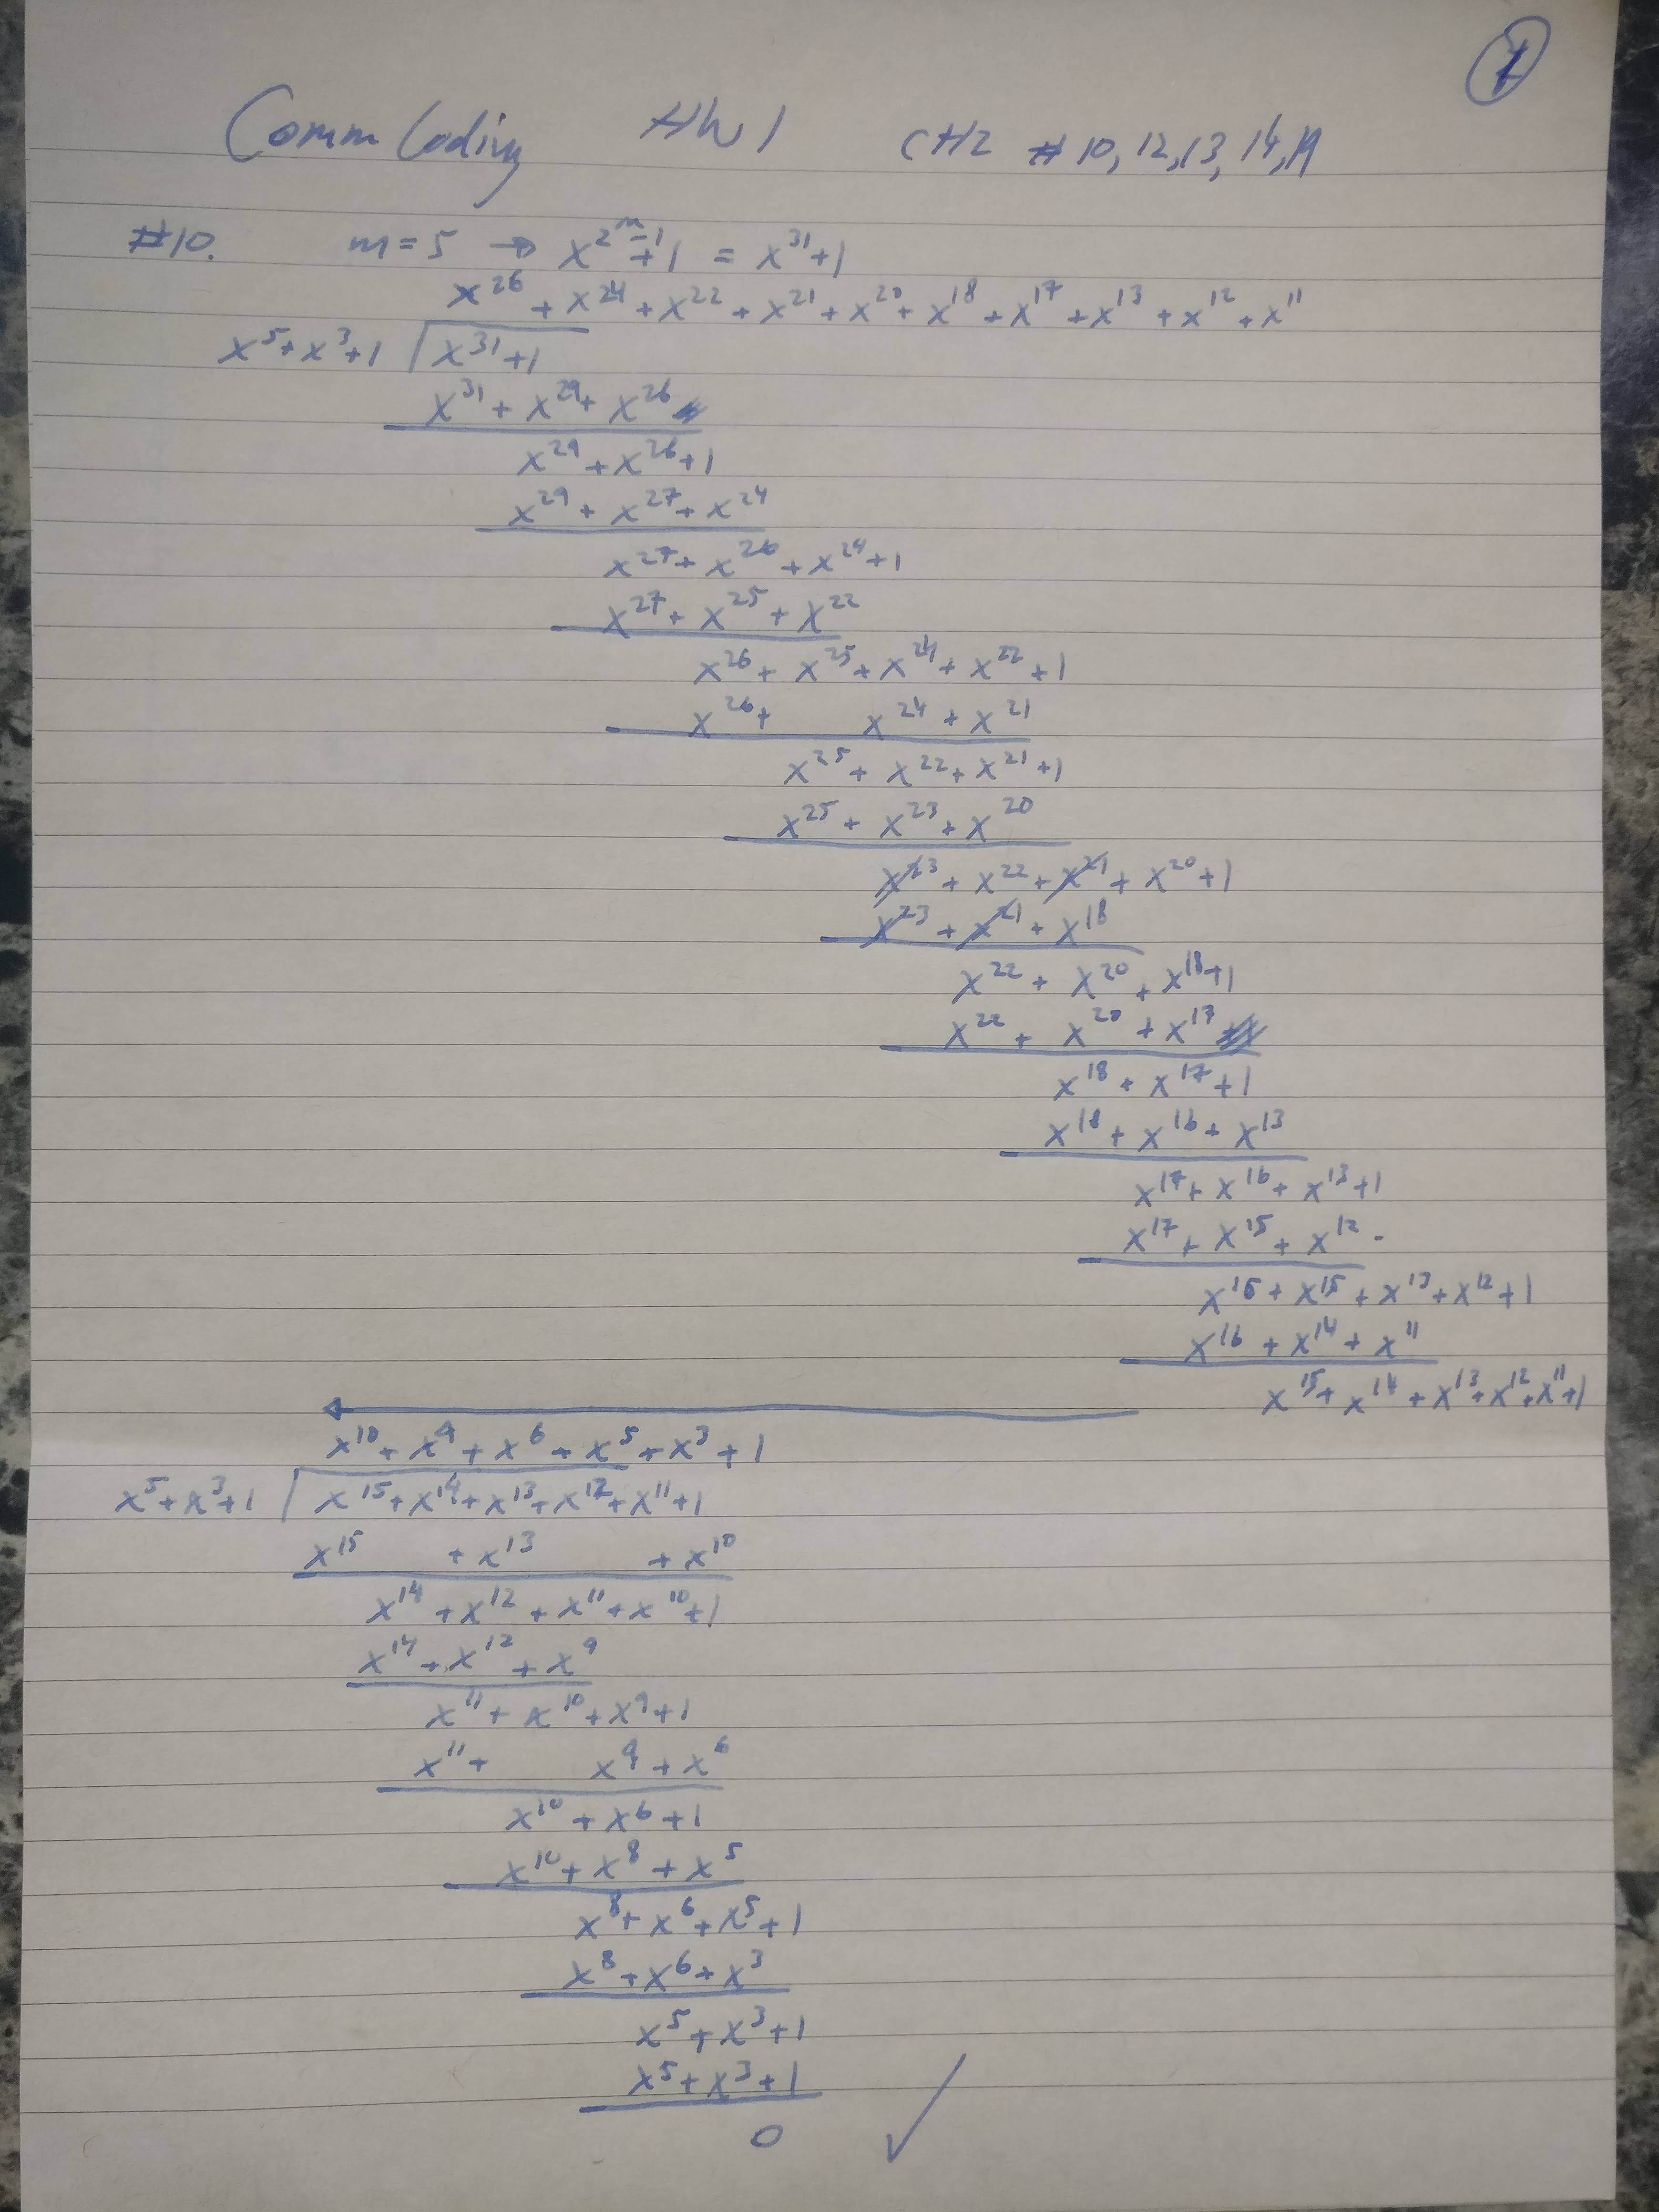 1
Comm Coding HW1 CH2 #10, 12, 13, 14, 19
#10. m=5 → x^{2^m-1}+1 = x^31+1
x^26 + x^24 + x^22 + x^21 + x^20 + x^18 + x^17 + x^13 + x^12 + x^11
x^5+x^3+1 | x^31+1
x^31 + x^29 + x^26
x^29 + x^26 + 1
x^29 + x^27 + x^24
x^27 + x^26 + x^24 + 1
x^27 + x^25 + x^22
x^26 + x^25 + x^24 + x^22 + 1
x^26 + x^24 + x^21
x^25 + x^22 + x^21 + 1
x^25 + x^23 + x^20
x^23 + x^22 + x^21 + x^20 + 1
x^23 + x^21 + x^18
x^22 + x^20 + x^18 + 1
x^22 + x^20 + x^17
x^18 + x^17 + 1
x^18 + x^16 + x^13
x^17 + x^16 + x^13 + 1
x^17 + x^15 + x^12
x^16 + x^15 + x^13 + x^12 + 1
x^16 + x^14 + x^11
x^15 + x^14 + x^13 + x^12 + x^11 + 1
x^10 + x^9 + x^6 + x^5 + x^3 + 1
x^5+x^3+1 | x^15 + x^14 + x^13 + x^12 + x^11 + 1
x^15 + x^13 + x^10
x^14 + x^12 + x^11 + x^10 + 1
x^14 + x^12 + x^9
x^11 + x^10 + x^9 + 1
x^11 + x^9 + x^6
x^10 + x^6 + 1
x^10 + x^8 + x^5
x^8 + x^6 + x^5 + 1
x^8 + x^6 + x^3
x^5 + x^3 + 1
x^5 + x^3 + 1
0 ✓